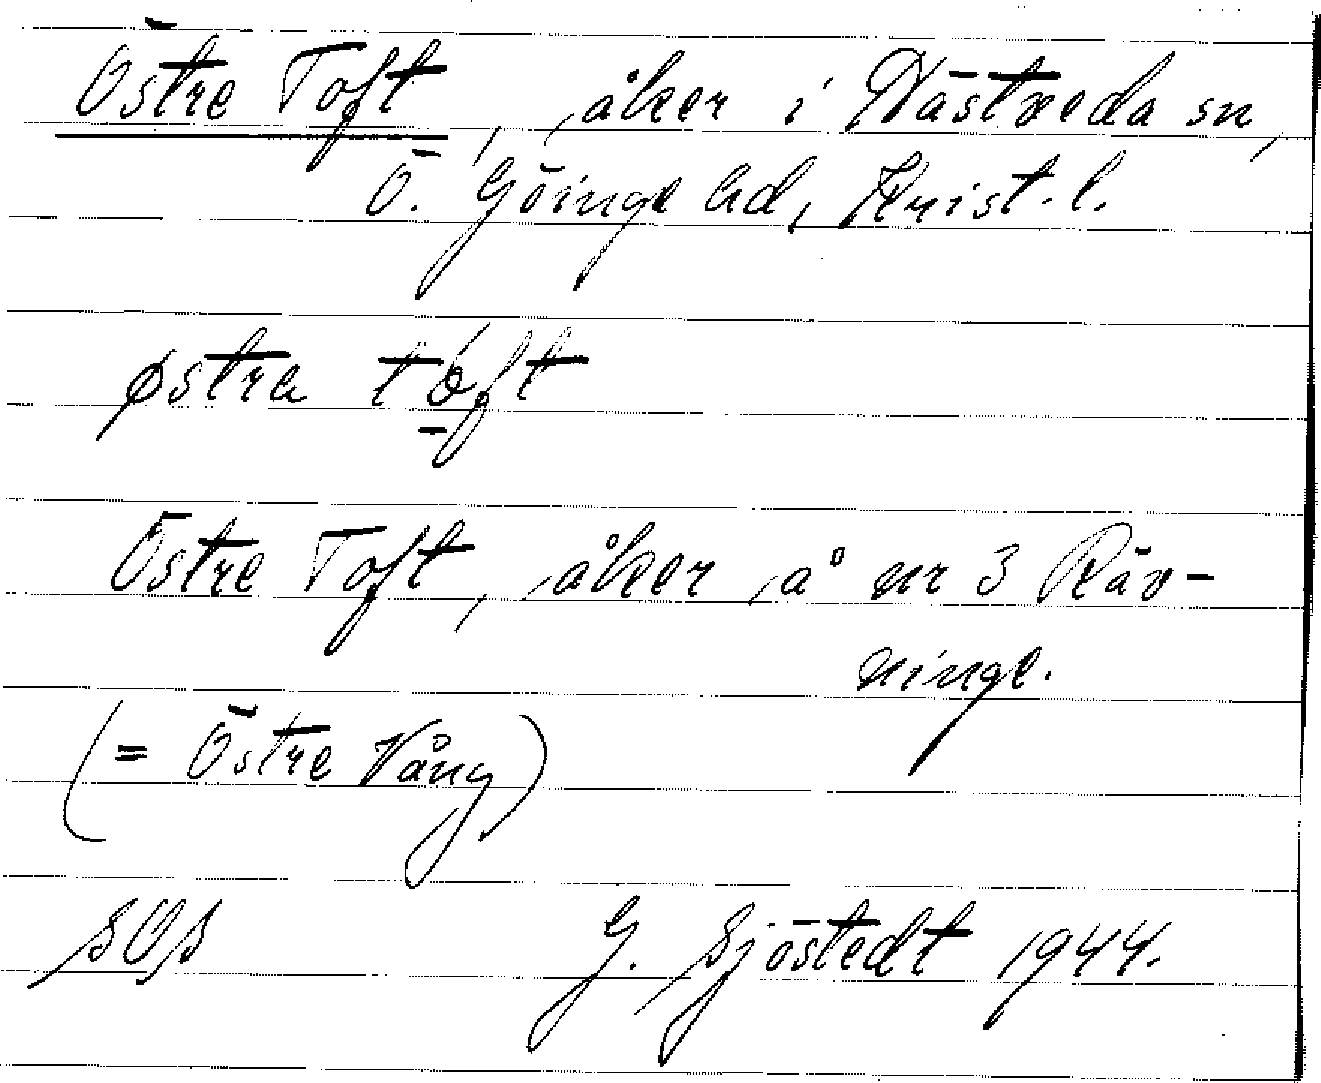 Östre Toft, åker i Nästveda sn,
Ö. Göinge hd, Krist. l.
østra tóft
Östre Toft, åker å nr 3 Räv-
ninge.
(= Östre Vång)
SOS G. Sjöstedt 1944.